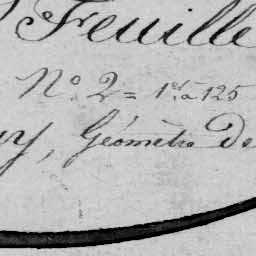 Feuille
N° 2 = 1er à 125
y, Géomètre De